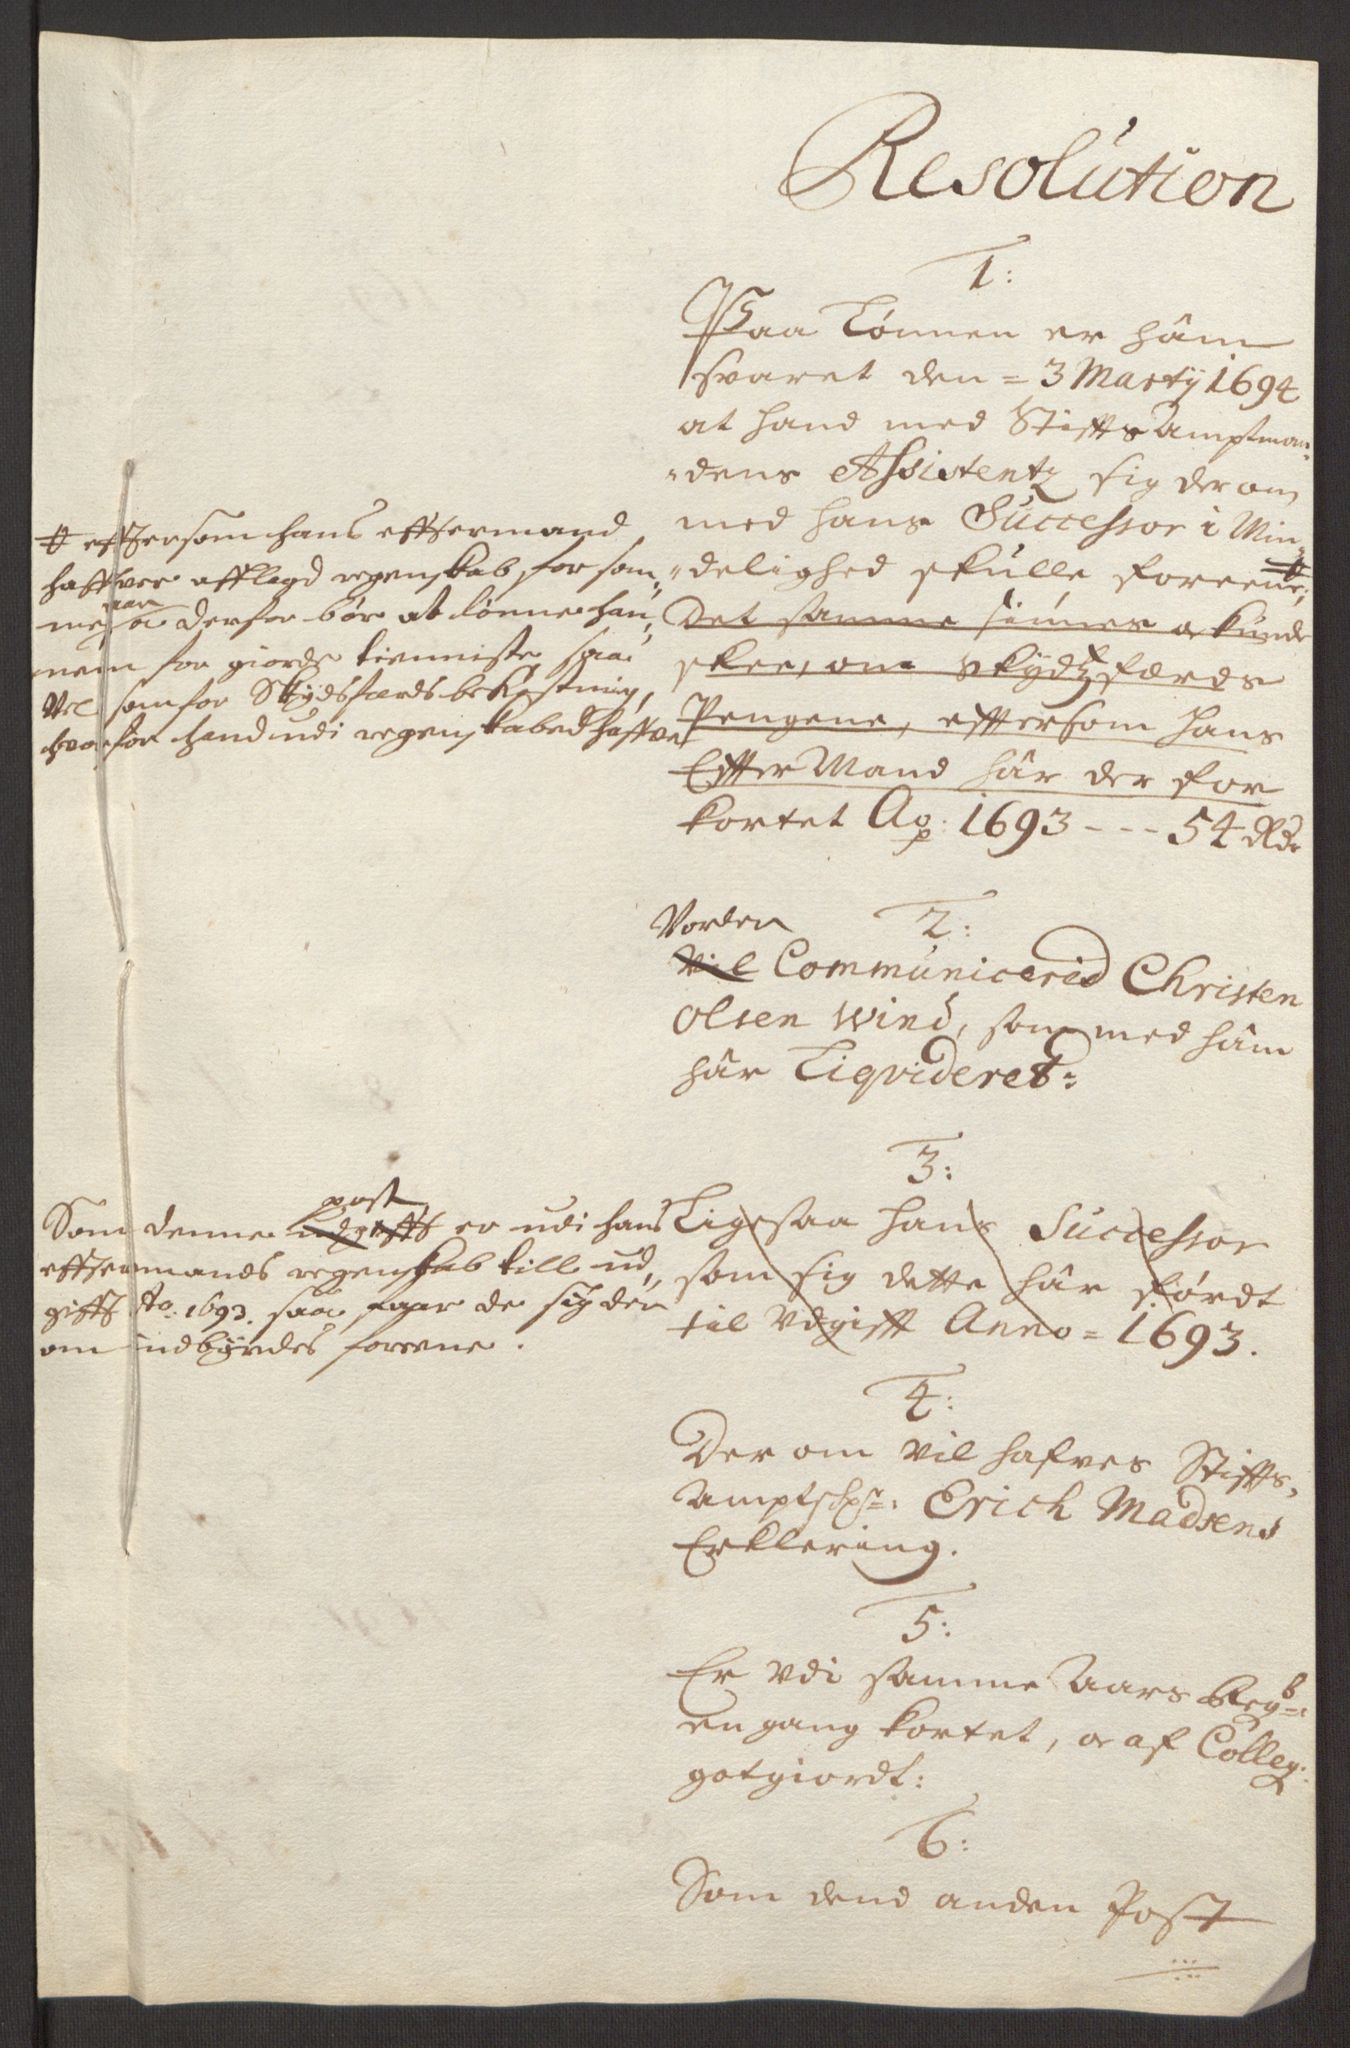 Resolution
1:
Paa Lønnen er håm
svaret den = 3 Martÿ 1694
at hand med Stiffts Amptman¬
¬dens Assistentz sig der om
med hans Successor i Min¬
¬delighed skulle foreene,
Det samme siunes og kunde
skee, om Skydtzfærds
Pengene, eftersom hans
Efter Mand hår der for
kortet Ao: 1693 --- 54 Rdr
# eftersom hans eftermand
haffver afflagd regenskab for sam¬
me aar derfor bør at lønne han¬
nem for giorde tienniste, saa
Vel som for Skydsfærds bekostning,
hvorfor hand udi regenskabed haffver
2:
Vorden
Vil Communicerid Christen
Olsen Wind, som med håm
hår Liqvideret:
3:
Ligesaa hans Successor
som sig dette hår fördt
til Vdgifft Anno = 1693.
post
Som denne udgifft er udi hans
eftermands regenskab till ud¬
gifft Ao. 1693. saa faar de sig der
om indbyrdes foreene.
4:
Der om vil hafves Stiffts¬
Amptschr: Erich Madsens
Erklering.
5:
Er Vdi samme Aars Regb:
en gang kortet, og af Colleg:
gotgiordt:
6:
Som dend anden Post